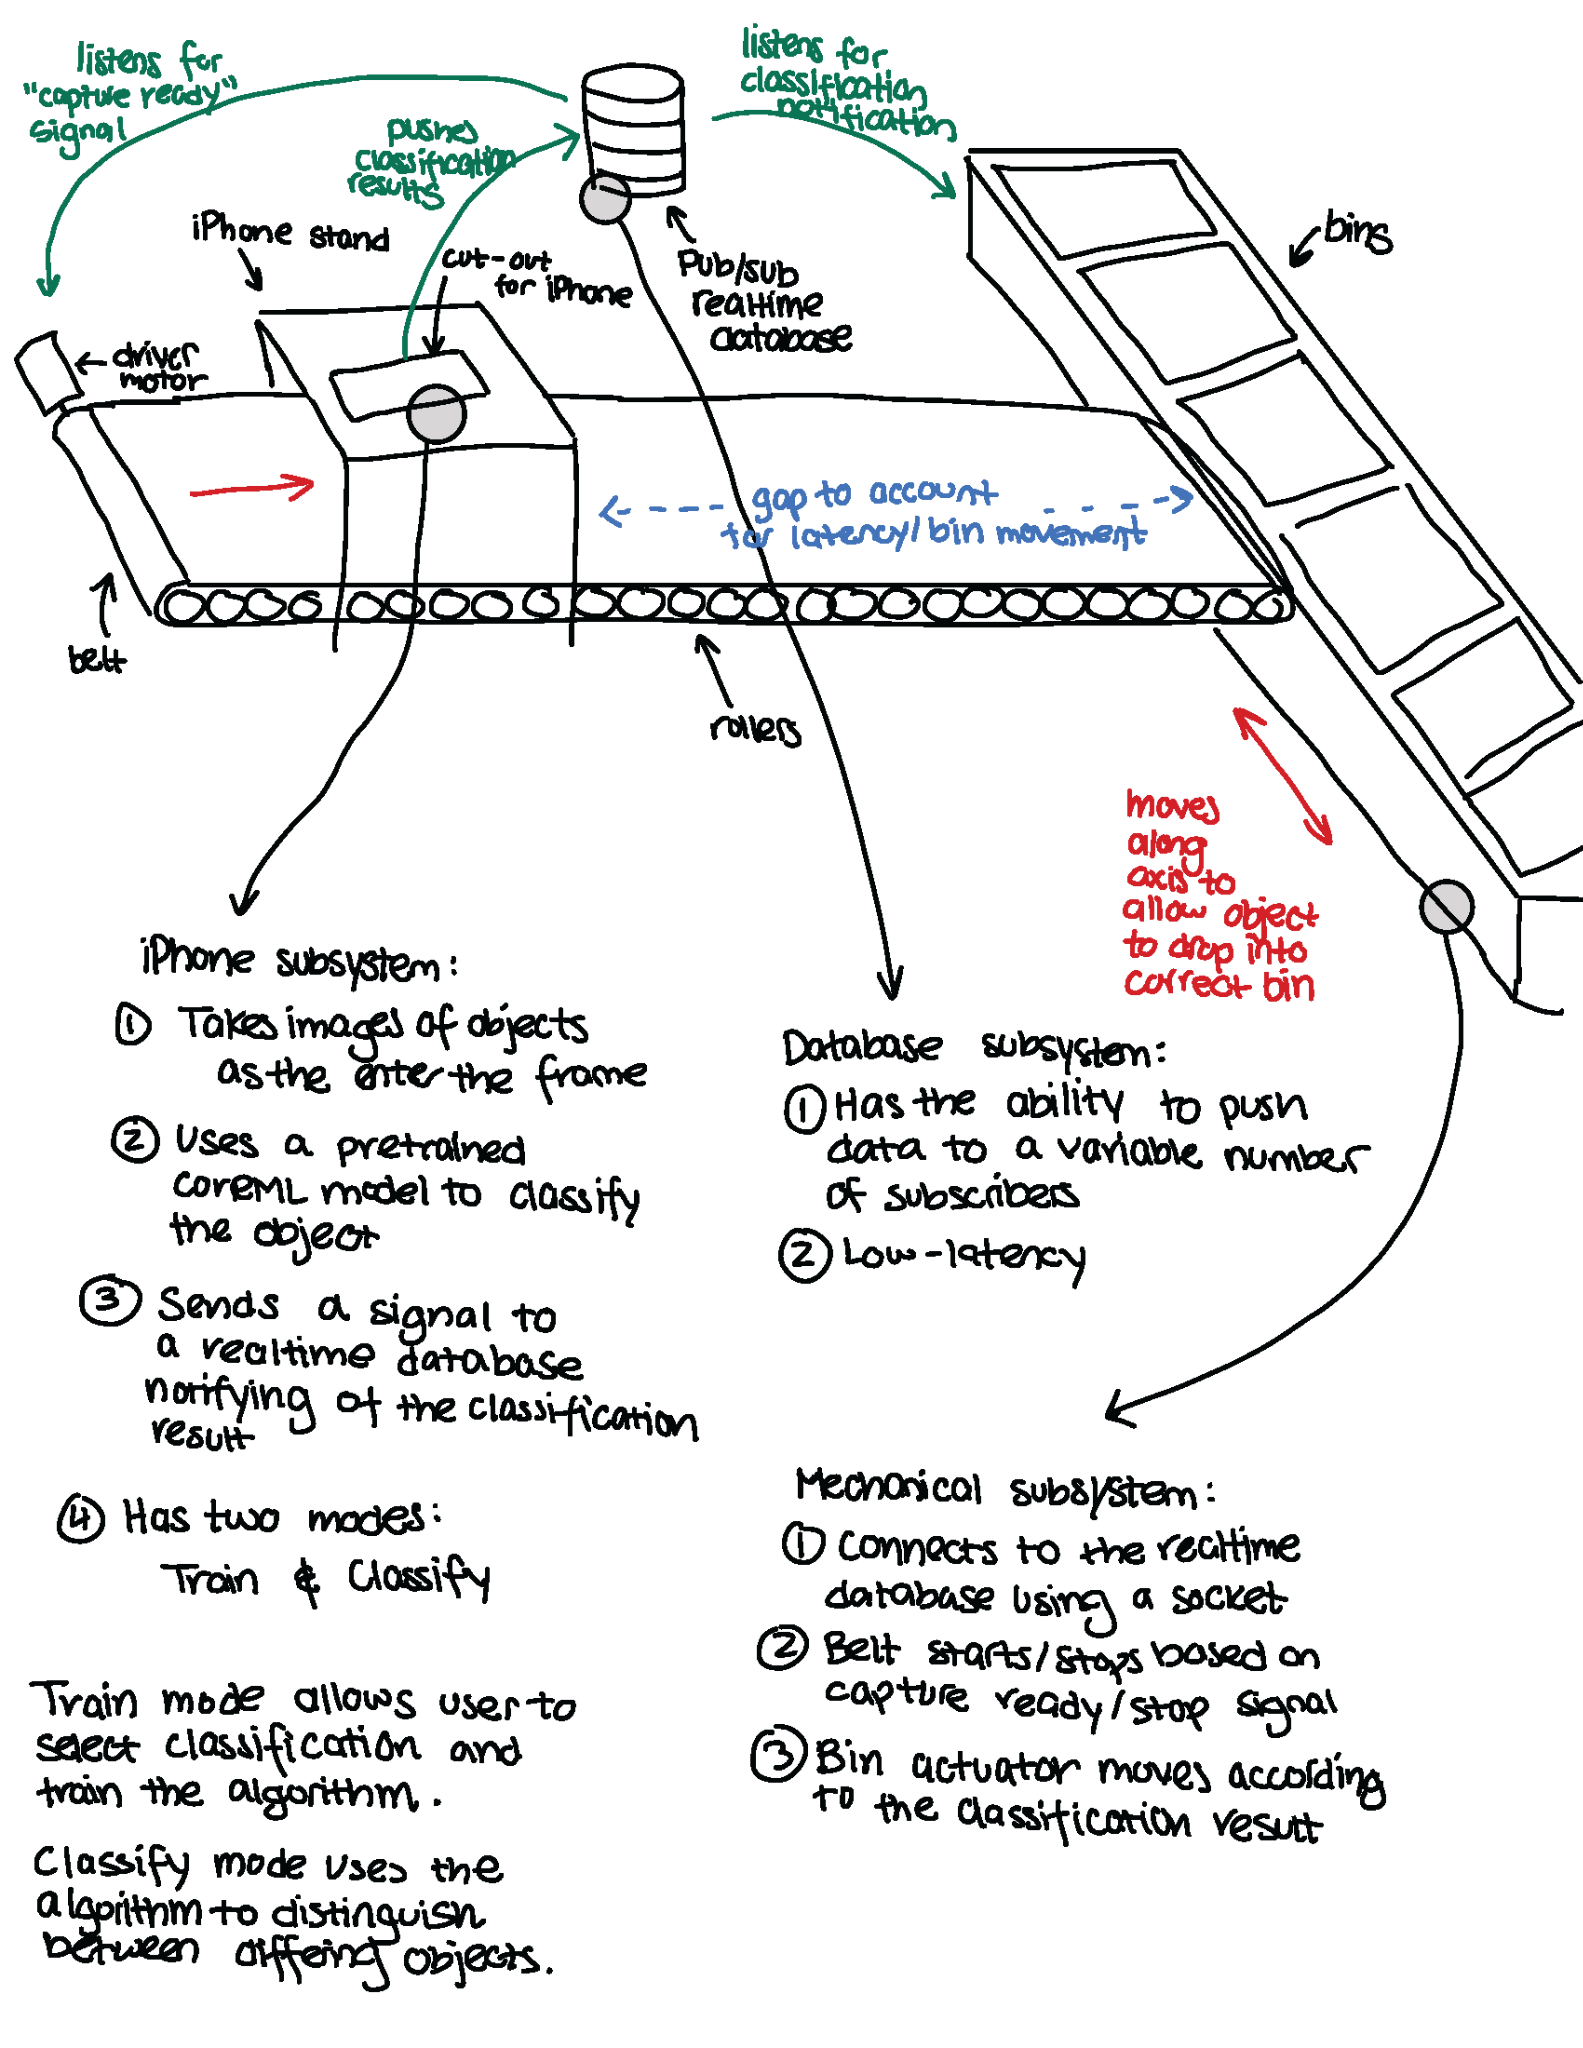 listens for
"capture ready"
signal
pushes
classification
results
listens for
classification
notification
iPhone stand
cut-out
for iPhone
Pub/sub
realtime
database
bins
driver
motor
gap to account
for latency/bin movement
belt
rollers
moves
along
axis to
allow object
to drop into
correct bin
iPhone subsystem:
① Takes images of objects
as the enter the frame
② Uses a pretrained
coreML model to classify
the object
③ Sends a signal to
a realtime database
notifying of the classification
result
④ Has two modes:
Train & Classify
Train mode allows user to
select classification and
train the algorithm.
Classify mode uses the
algorithm to distinguish
between differing objects.
Database subsystem:
① Has the ability to push
data to a variable number
of subscribers
② Low-latency
Mechanical subsystem:
① Connects to the realtime
database using a socket
② Belt starts/stops based on
capture ready/stop signal
③ Bin actuator moves according
to the classification result